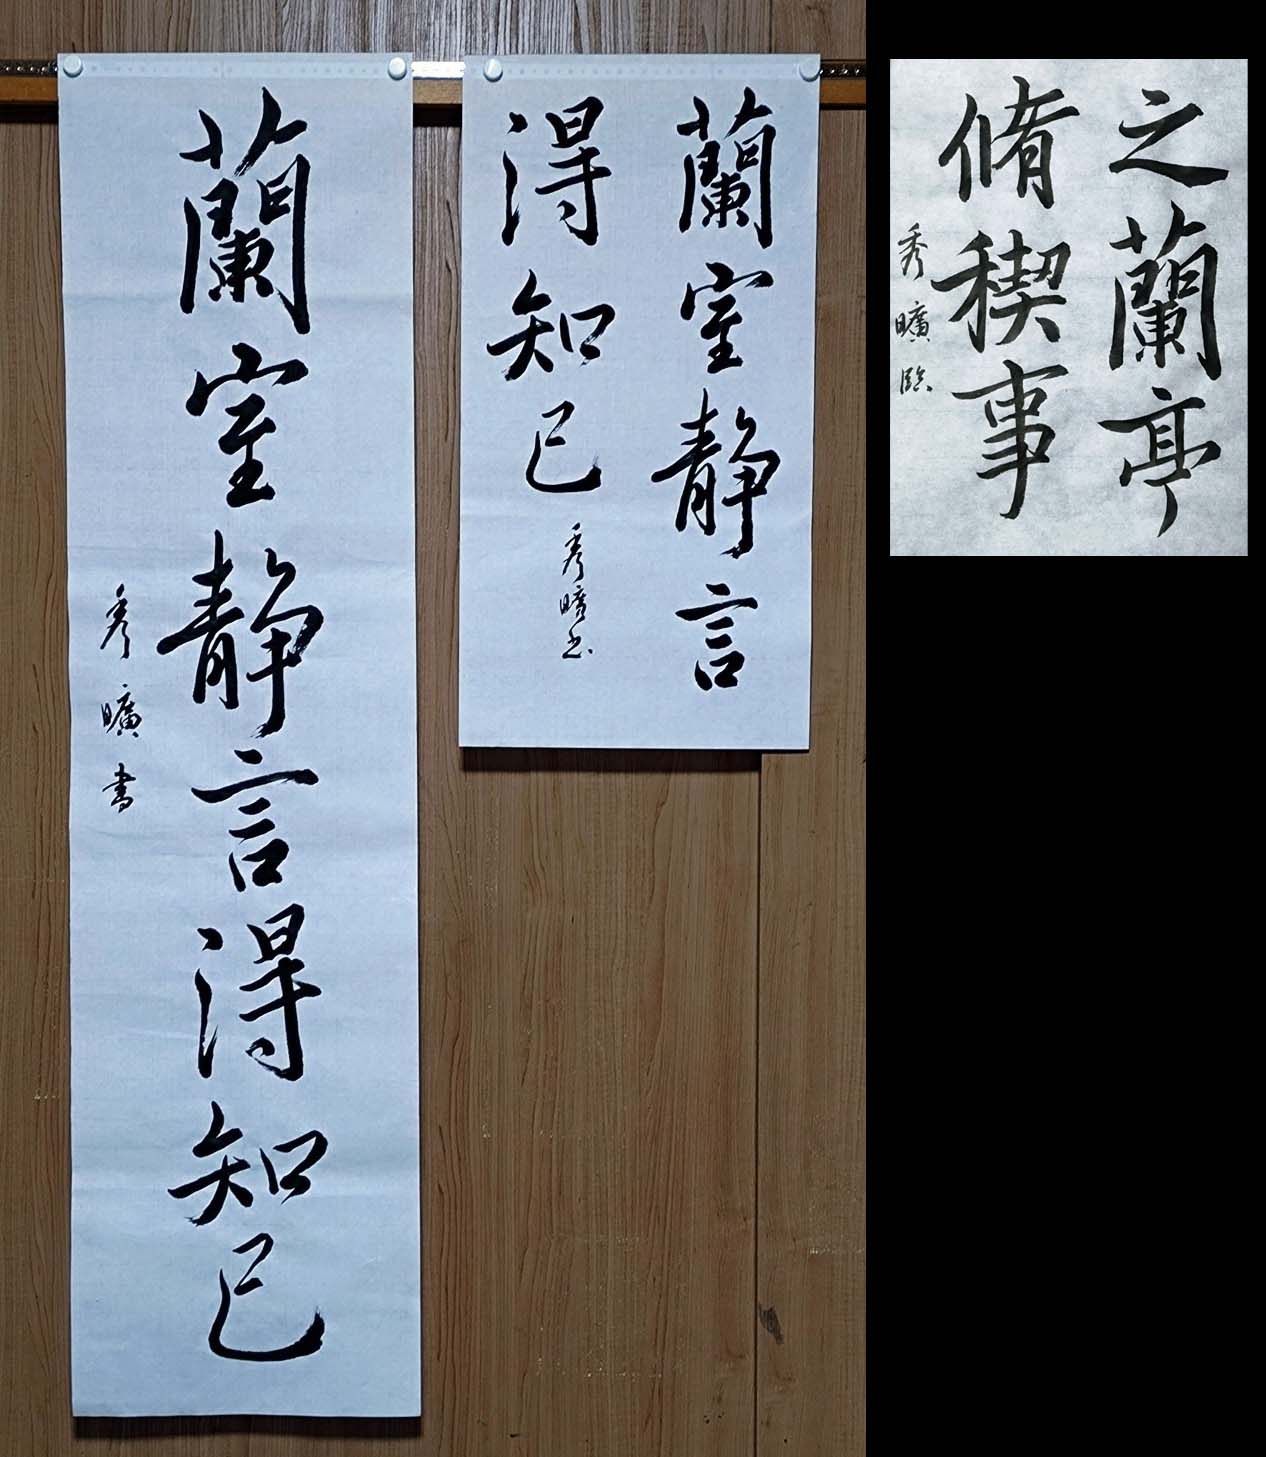 蘭室静言得知己
秀曠書
蘭室静言
得知己
秀曠书
之蘭亭
脩稧事
秀曠臨